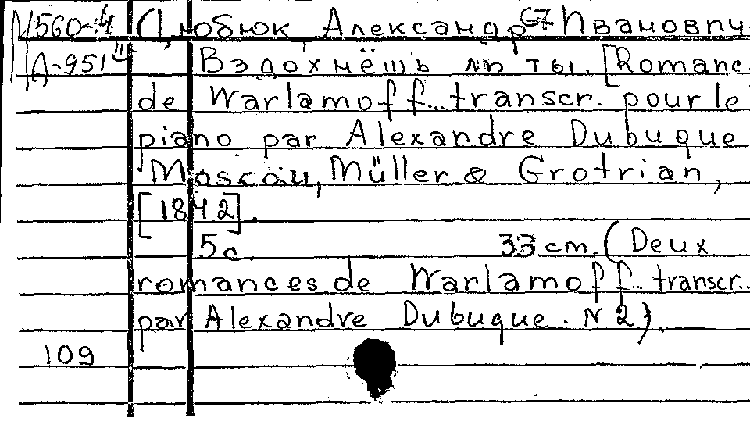 М560-4 Дюбюк, Александр Иванович
А-951 Вздохнёшь ли ты. [Romance
de Warlamoff.. transcr. pour le
piano par Alexandre Dubuque
Moscou, Müller & Grotrian,
[1842].
5c. 33 cm. (Deux
romances de Warlamoff.. transcr.
par Alexandre Dubuque. N 2).
109